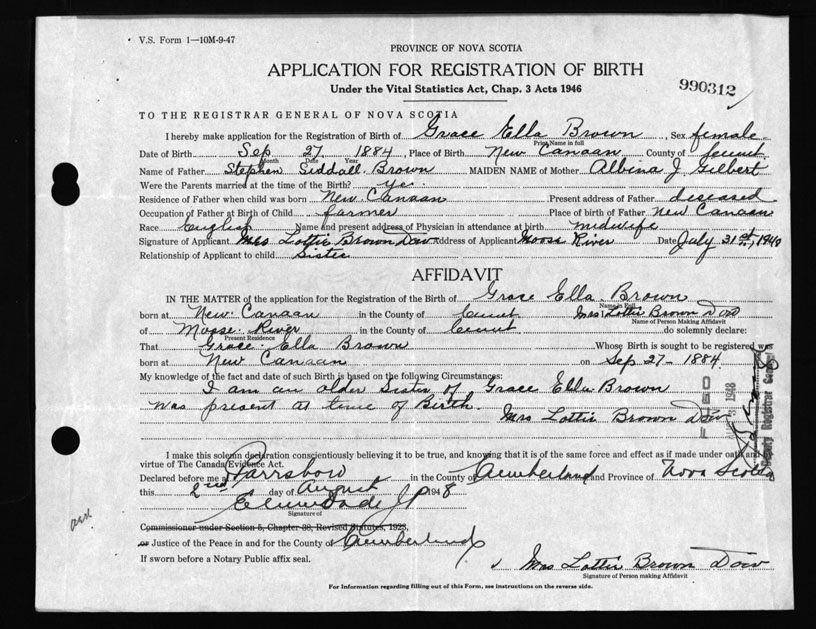 V.S. Form 1—10M-9-47
PROVINCE OF NOVA SCOTIA
APPLICATION FOR REGISTRATION OF BIRTH
990312
Under the Vital Statistics Act, Chap. 3 Acts 1946
TO THE REGISTRAR GENERAL OF NOVA SCOTIA
I hereby make application for the Registration of Birth of Grace Ella Brown, Sex female
Print Name in full
Date of Birth Sep 27 1884, Place of Birth New Canaan County of
Month Date Year
Name of Father Stephen Siddall Brown MAIDEN NAME of Mother Albina J. Gilbert
Were the Parents married at the time of the Birth?
Residence of Father when child was born New Canaan Present address of Father deseased
Occupation of Father at Birth of Child farmer Place of birth of Father New Canaan
Race English Name and present address of Physician in attendance at birth midwife
Signature of Applicant Mrs Lottie Brown Dow Address of Applicant Moose River Date July 31st,
Relationship of Applicant to child Sister
AFFIDAVIT
IN THE MATTER of the application for the Registration of the Birth of Grace Ella Brown
Name in Full
born at New Canaan in the County of Mrs Lottie Brown Dow
Name of Person Making Affidavit
of Moose River in the County of do solemnly declare:
Present Residence
That Grace Ella Brown Whose Birth is sought to be registered was
born at New Canaan on Sep 27-1884
My knowledge of the fact and date of such Birth is based on the following Circumstances:
I am an older Sister of Grace Ella Brown
was present at time of Birth.
Mrs Lottie Brown Dow
FILED
1948
Deputy Registrar General
I make this solemn declaration conscientiously believing it to be true, and knowing that it is of the same force and effect as if made under oath and
virtue of The Canada Evidence Act.
Declared before me at Parrsboro in the County of Cumberland and Province of Nova Scotia
this 2nd day of August 1948
JP
Signature of
Commissioner under Section 5, Chapter 39, Revised Statutes, 1923,
or Justice of the Peace in and for the County of Cumberland
If sworn before a Notary Public affix seal.
Mrs Lottie Brown Dow
Signature of Person making Affidavit
For Information regarding filling out of this Form, see instructions on the reverse side.